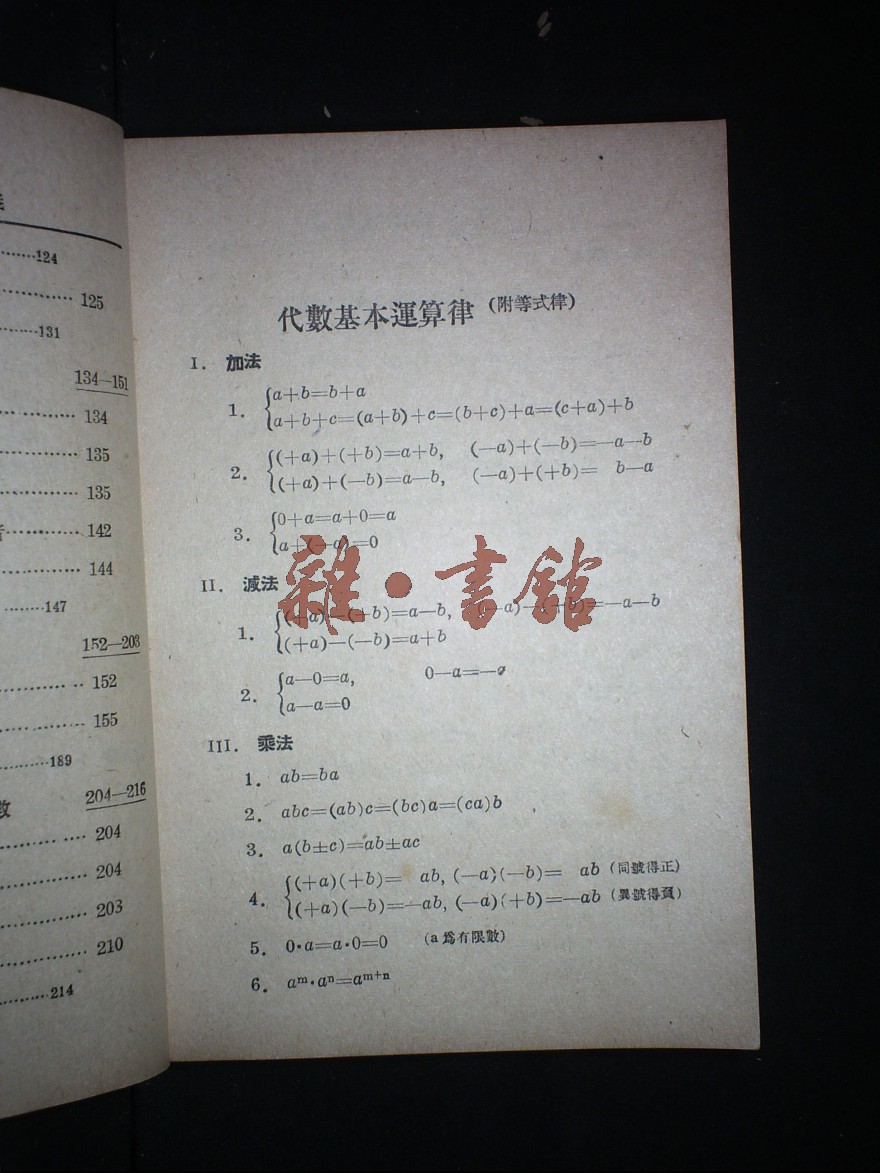 124
125
131
134—151
134
135
135
142
144
147
152—203
152
155
189
204—216
204
204
203
210
214
代數基本運算律 (附等式律)
I. 加法
1. {a+b=b+a
a+b+c=(a+b)+c=(b+c)+a=(c+a)+b
2. {(+a)+(+b)=a+b, (—a)+(—b)=—a—b
(+a)+(—b)=a—b, (—a)+(+b)= b—a
3. {0+a=a+0=a
a+(—a)=0
雜·書館
II. 減法
1. {(+a)—(+b)=a—b, (—a)—(+b)=—a—b
(+a)—(—b)=a+b
2. {a—0=a, 0—a=—a
a—a=0
III. 乘法
1. ab=ba
2. abc=(ab)c=(bc)a=(ca)b
3. a(b±c)=ab±ac
4. {(+a)(+b)= ab, (—a)(—b)= ab (同號得正)
(+a)(—b)=—ab, (—a)(+b)=—ab (異號得負)
5. 0·a=a·0=0 (a 爲有限數)
6. aᵐ·aⁿ=aᵐ⁺ⁿ